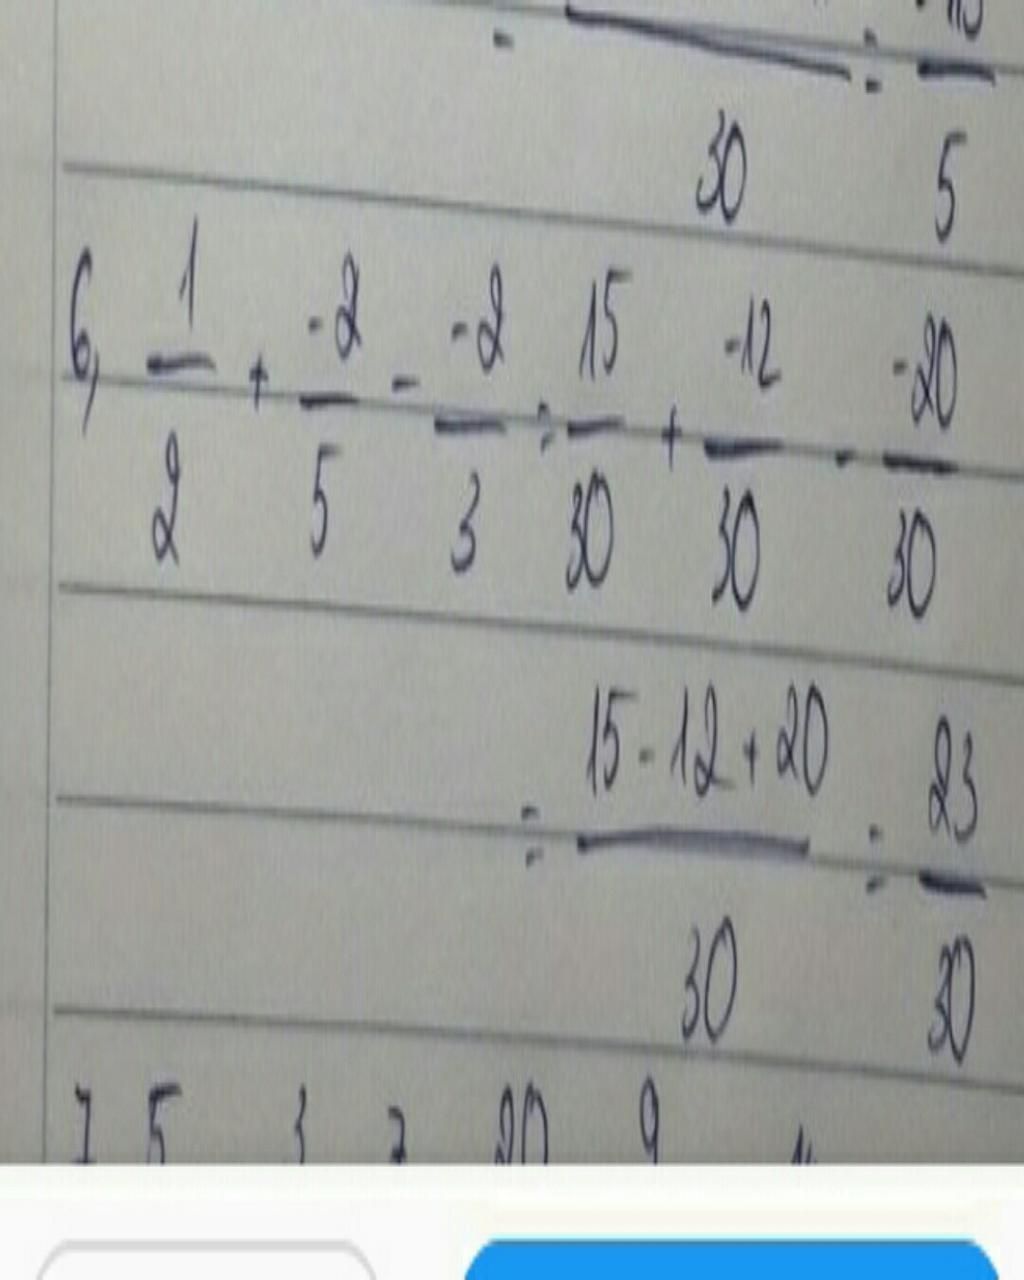 30 5
6, 1/2 + -2/5 - -2/3 = 15/30 + -12/30 - -20/30
= 15 - 12 + 20/30 = 23/30